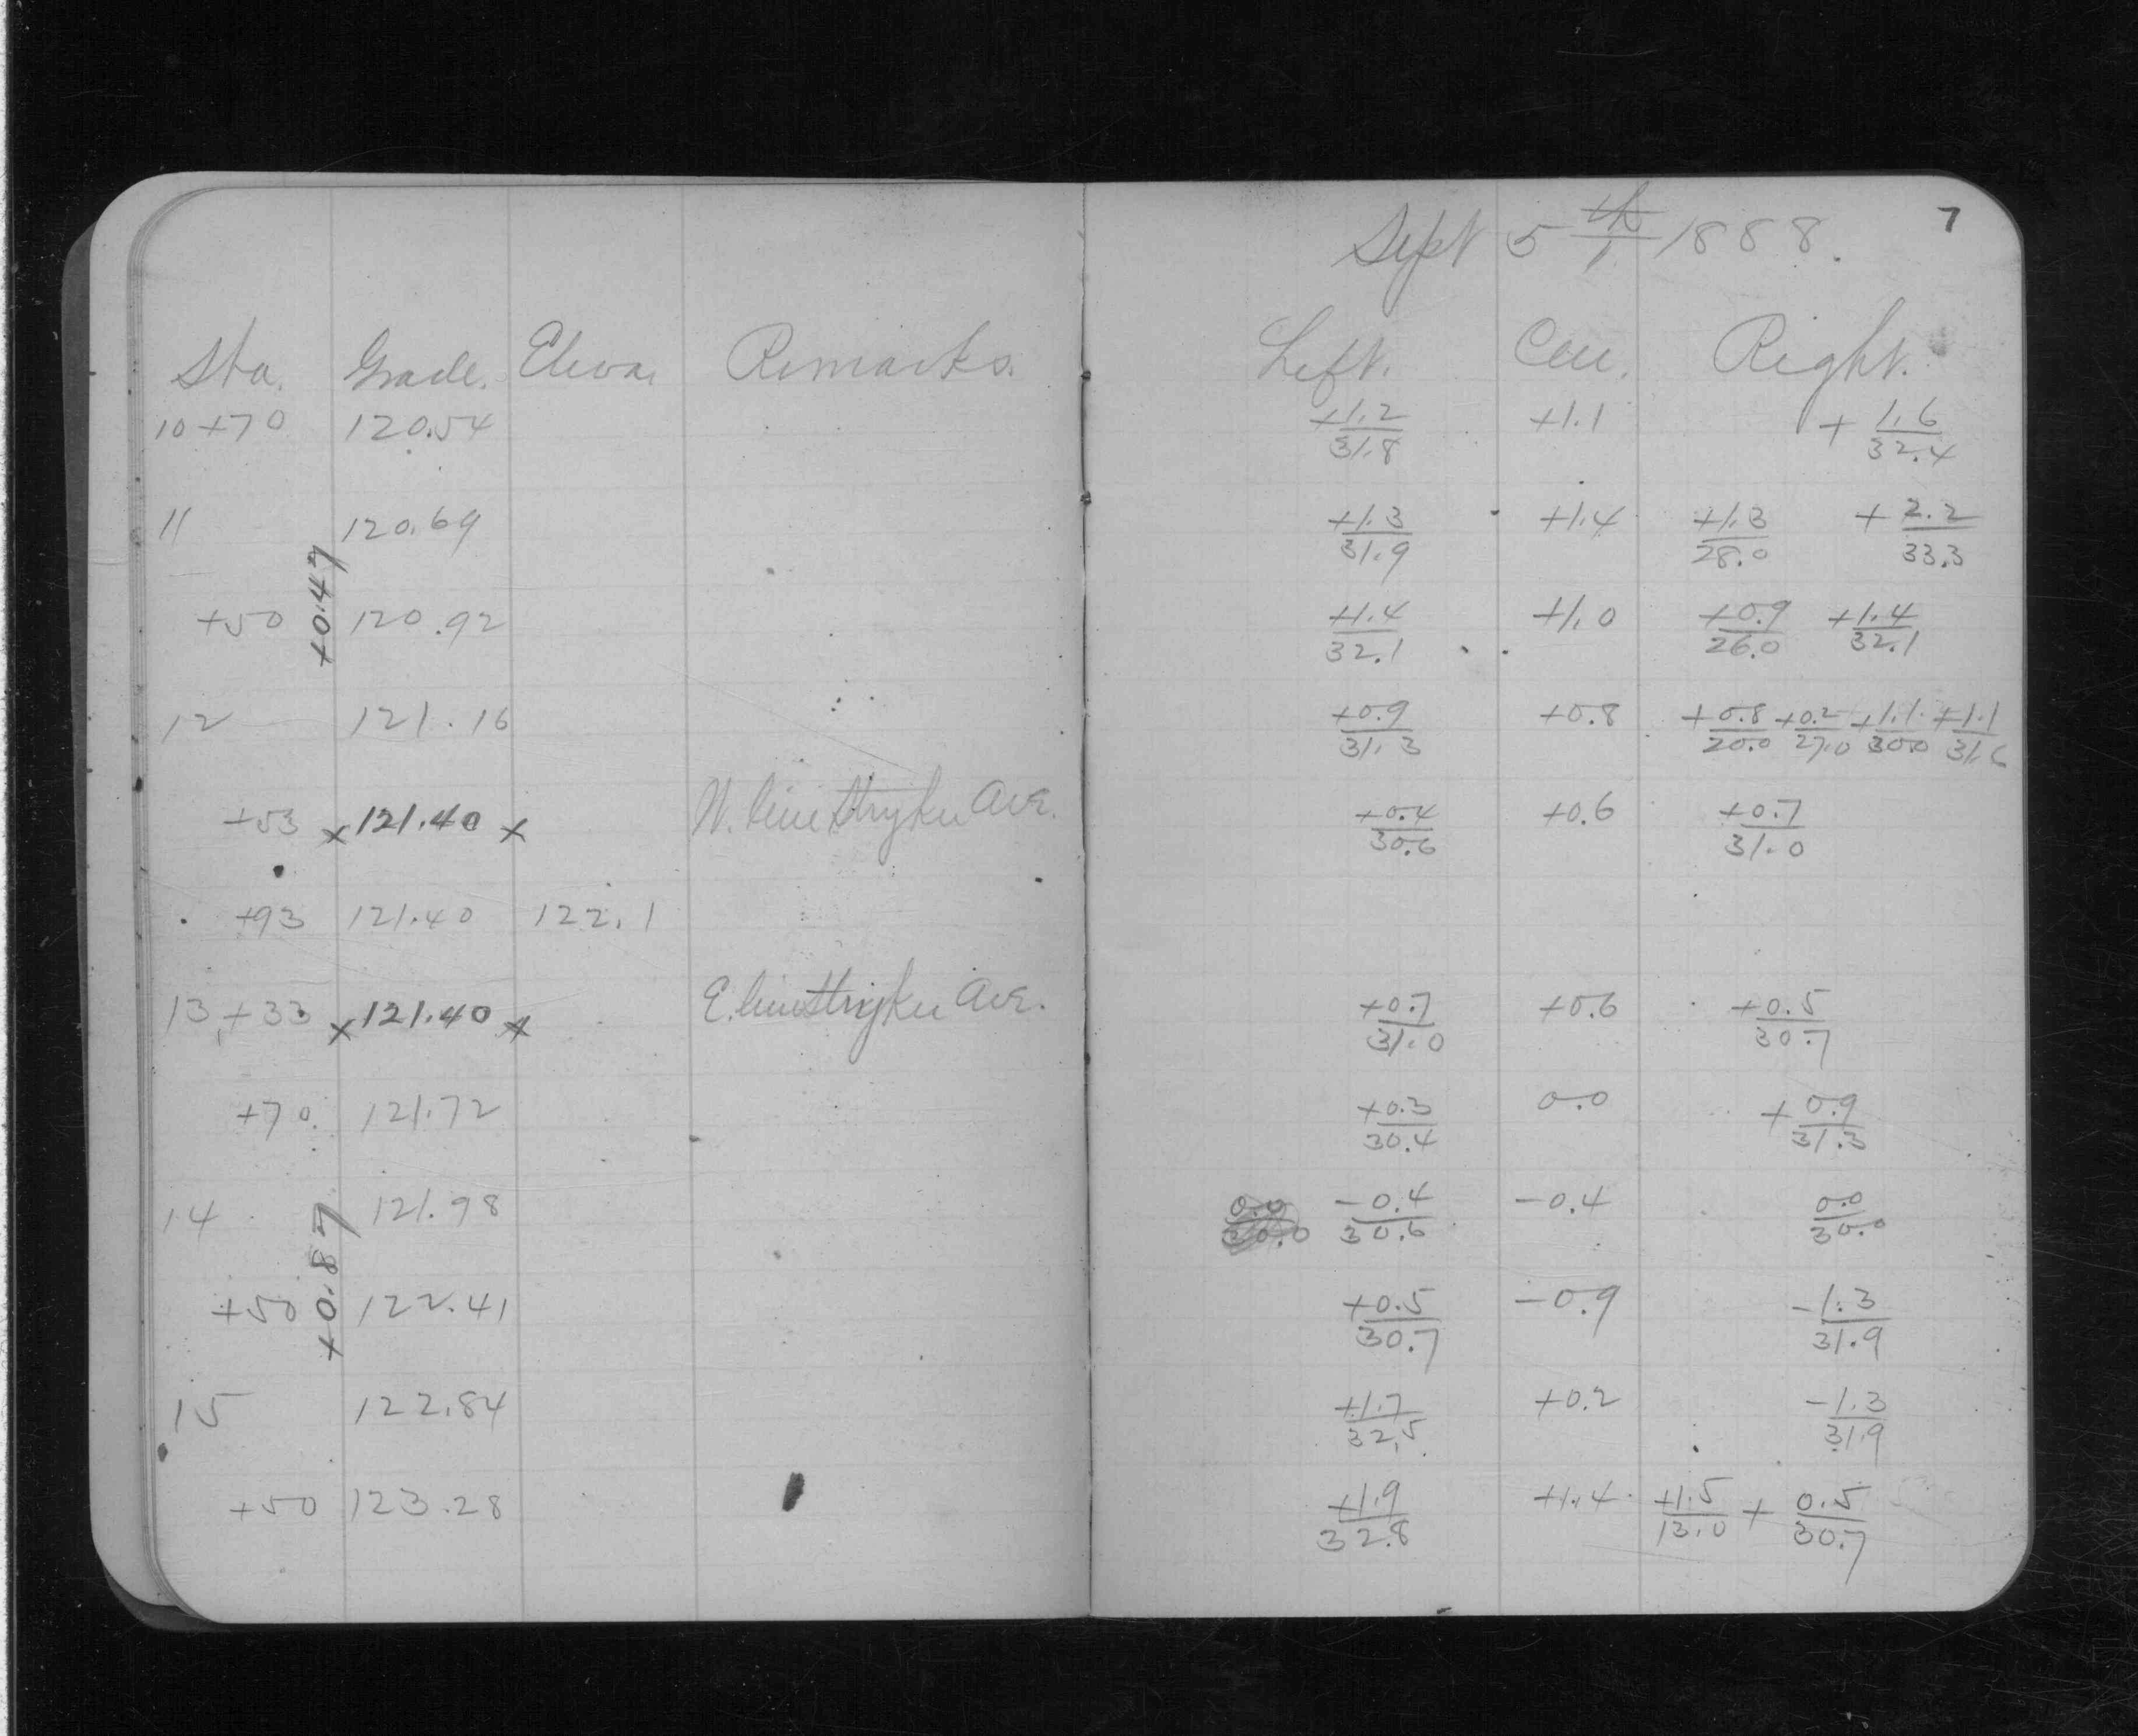 Sept 5th 1888. 7
Sta. Grade. Eleva. Remarks. Left. Cen. Right.
10+70 120.54 +1.2/31.8 +1.1 +1.6/32.4
11 120.69 +1.3/31.9 +1.4 +1.3/28.0 +2.2/33.3
+0.47
+50 120.92 +1.4/32.1 +1.0 +0.9/26.0 +1.4/32.1
12 121.16 +0.9/31.3 +0.8 +0.8/20.0 +0.2/27.0 +1.1/30.0 +1.1/31.6
+53 x 121.40 x W. line Stryker Ave. +0.4/30.6 +0.6 +0.7/31.0
+93 121.40 122.1
13+33 x 121.40 x E. line Stryker Ave. +0.7/31.0 +0.6 +0.5/30.7
+70 121.72 +0.3/30.4 0.0 +0.9/31.3
14 121.98 0.0/30.0 -0.4/30.6 -0.4 0.0/30.0
+0.87
+50 122.41 +0.5/30.7 -0.9 -1.3/31.9
15 122.84 +1.7/32.5 +0.2 -1.3/31.9
+50 123.28 +1.9/32.8 +1.4 +1.5/13.0 +0.5/30.7